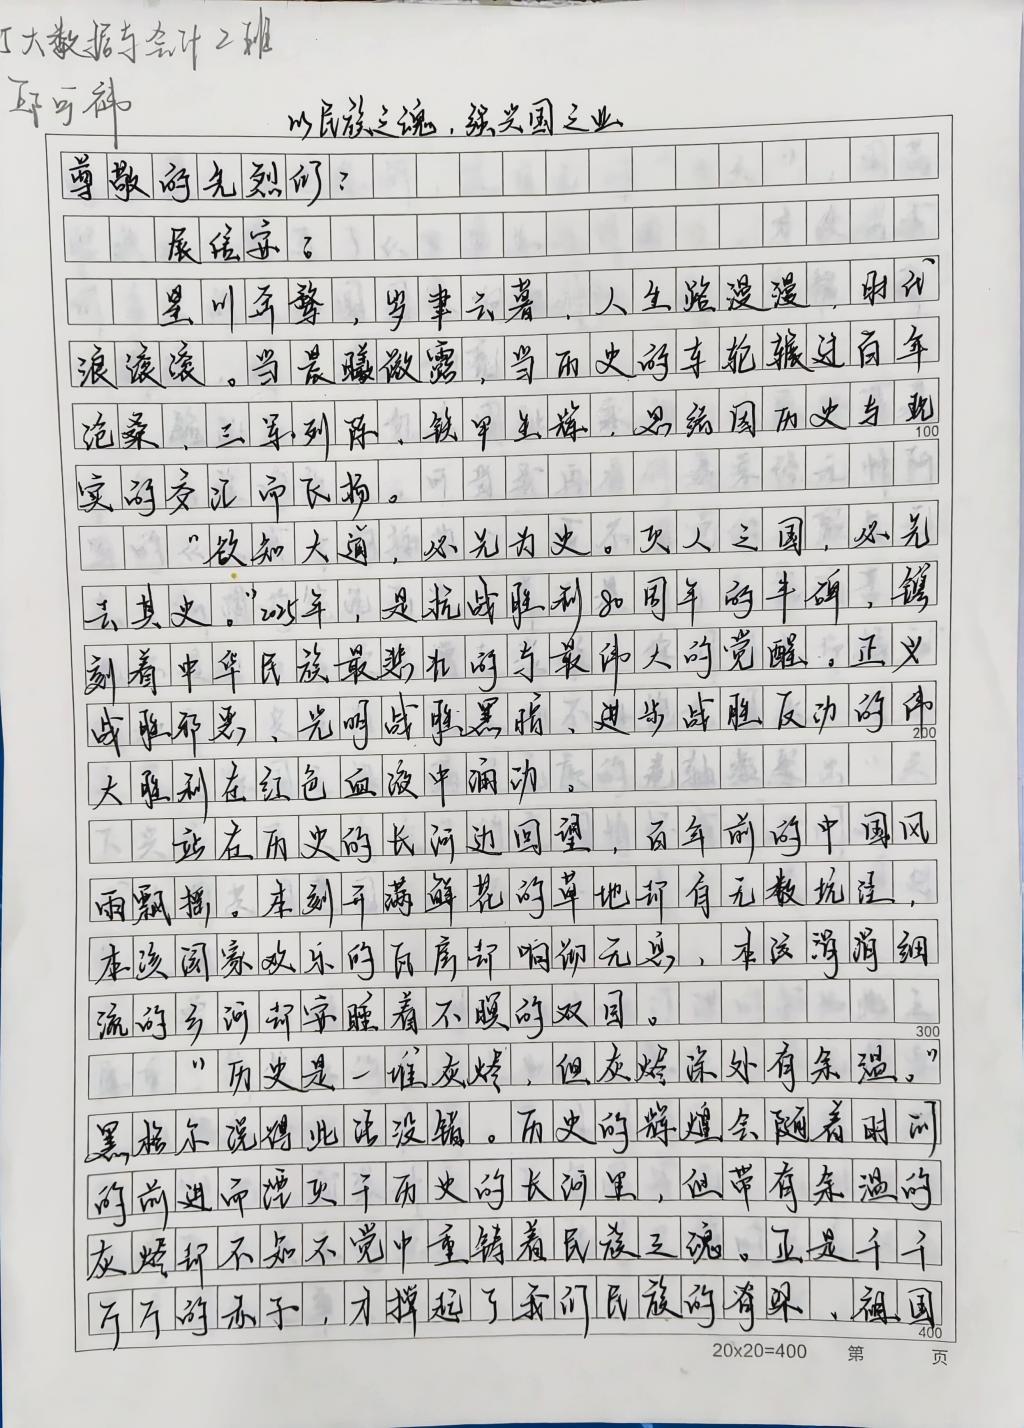 大数据与会计2班
可祎
以民族之魂，强兴国之业
尊敬的先烈们：
展信安。
星川弄鹜，岁聿云暮，人生路漫漫，时代
浪滚滚。当晨曦微露，当历史的车轮辗过百年
沧桑，三军列阵，铁甲生辉，思绪因历史与现
100
实的交汇而飞扬。
“欲知大道，必先为史。灭人之国，必先
去其史。”2025年，是抗战胜利80周年的丰碑，镌
刻着中华民族最悲壮的与最伟大的觉醒。正义
战胜邪恶、光明战胜黑暗、进步战胜反动的伟
200
大胜利在红色血液中涌动。
站在历史的长河边回望，百年前的中国风
雨飘摇。本刻开满鲜花的草地却有无数坑洼，
本该阖家欢乐的瓦房却响彻无息，本该涓涓细
流的乡河却安睡着不暝的双目。
300
“历史是一堆灰烬，但灰烬深处有余温。”
黑格尔说得此话没错。历史的辉煌会随着时间
的前进而湮灭于历史的长河里，但带有余温的
灰烬却不知不觉中重铸着民族之魂。正是千千
万万的赤子，才撑起了我们民族的脊梁、祖国
400
20x20=400 第 页